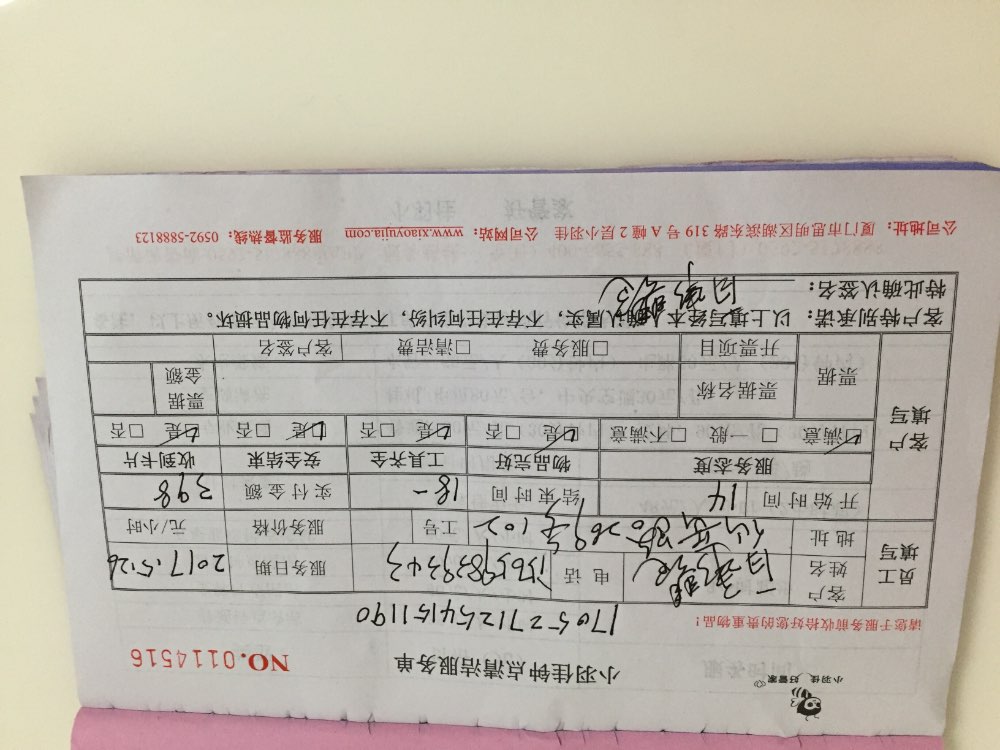 小羽佳 好管家
小羽佳钟点清洁服务单
NO.0114516
请您于服务前收拾好您的贵重物品!
17052712541511190
员工填写 客户姓名 电话 13659839343 服务日期 2017.5.26
地址 仙岳路 269号102 工号 服务价格 元/小时
客户填写 开始时间 14 结束时间 18- 实付金额 398
服务态度 物品完好 工具齐全 安全结束 收到卡片
☑满意 □一般 □不满意 ☑是 □否 ☑是 □否 ☑是 □否 ☑是 □否
票据 票据名称 票据金额
开票项目 □服务费 □清洁费 客户签名
客户特别承诺:以上填写经本人确认属实,不存在任何纠纷,不存在任何物品损坏。
特此确认签名:
公司地址:厦门市思明区湖滨东路319号A幢2层小羽佳 公司网站:www.xiaoyujia.com 服务监督热线:0592-5888123